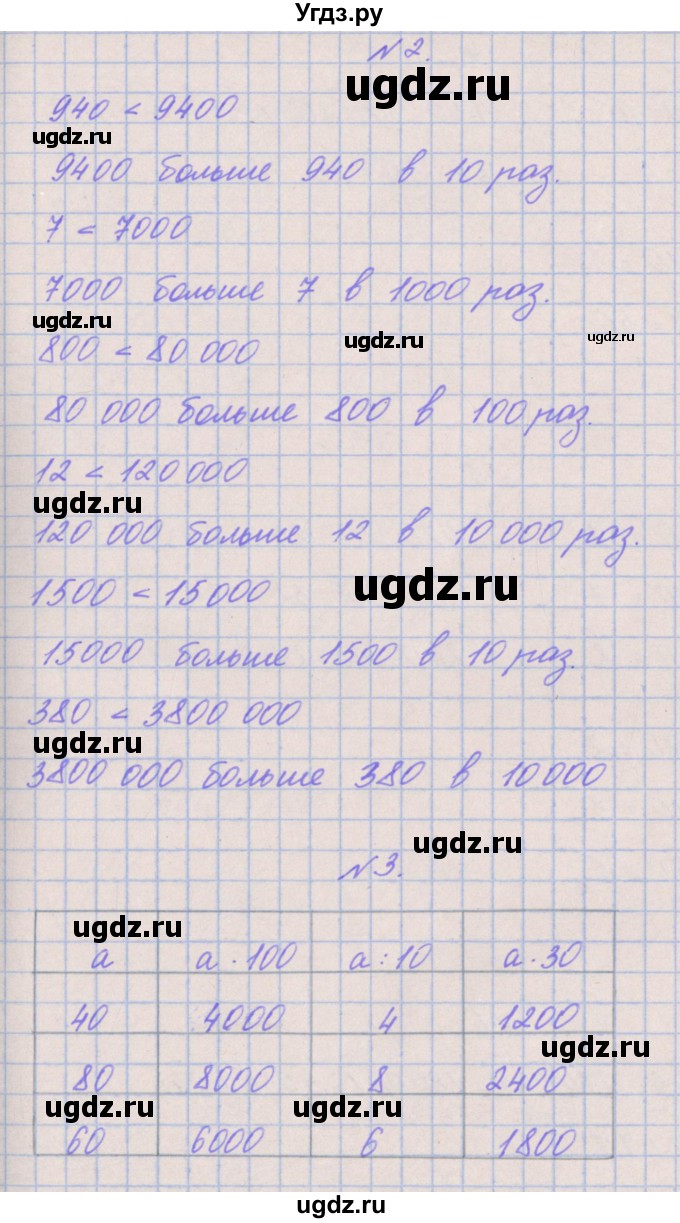 Угдз.ру
N 2.
ugdz.ru
940 < 9400
ugdz.ru
9400 больше 940 в 10 раз.
7 < 7000
7000 больше 7 в 1000 раз.
ugdz.ru
ugdz.ru
ugdz.ru
800 < 80 000
80 000 больше 800 в 100 раз.
12 < 120 000
ugdz.ru
120 000 больше 12 в 10 000 раз.
ugdz.ru
1500 < 15 000
15000 больше 1500 в 10 раз.
380 < 3800 000
ugdz.ru
3800 000 больше 380 в 10 000
ugdz.ru
N 3.
ugdz.ru
a a · 100 a : 10 a · 30
40 4000 4 1200
ugdz.ru
80 8000 8 2400
ugdz.ru ugdz.ru
60 6000 6 1800
ugdz.ru